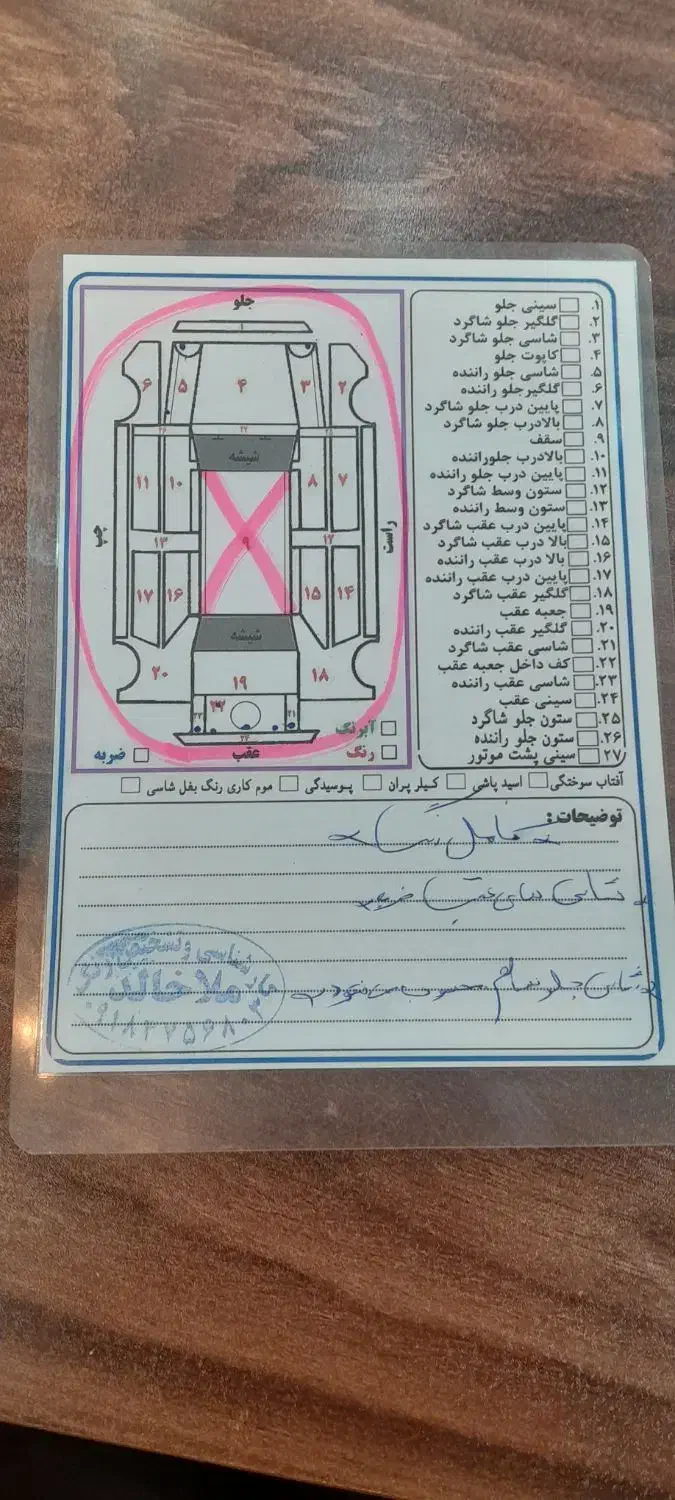 جلو
۱. سینی جلو
۲. گلگیر جلو شاگرد
۳. شاسی جلو شاگرد
۴. کاپوت جلو
۵. شاسی جلو راننده
۶. گلگیرجلو راننده
۷. پایین درب جلو شاگرد
۸. بالادرب جلو شاگرد
۹. سقف
۱۰. بالادرب جلوراننده
۱۱. پایین درب جلو راننده
۱۲. ستون وسط شاگرد
۱۳. ستون وسط راننده
۱۴. پایین درب عقب شاگرد
۱۵. بالا درب عقب شاگرد
۱۶. بالا درب عقب راننده
۱۷. پایین درب عقب راننده
۱۸. گلگیر عقب شاگرد
۱۹. جعبه عقب
۲۰. گلگیر عقب راننده
۲۱. شاسی عقب شاگرد
۲۲. کف داخل جعبه عقب
۲۳. شاسی عقب راننده
۲۴. سینی عقب
۲۵. ستون جلو شاگرد
۲۶. ستون جلو راننده
۲۷. سینی پشت موتور
۶ ۵ ۴ ۳ ۲
شیشه
۱۱ ۱۰ ۸ ۷
چپ
راست
۱۳ ۹ ۱۲
۱۷ ۱۶ ۱۵ ۱۴
شیشه
۲۰ ۱۹ ۱۸
۲۳ ۲۲ ۲۱
۲۴
عقب
آبرنگ
رنگ
ضربه
آفتاب سوختگی اسید پاشی کیلر پران پوسیدگی موم کاری رنگ بغل شاسی
توضیحات:
کامل رنگ
شاسی های عقب ضربه
شاسی جلو سالم محسوب می شود
ملا خالد